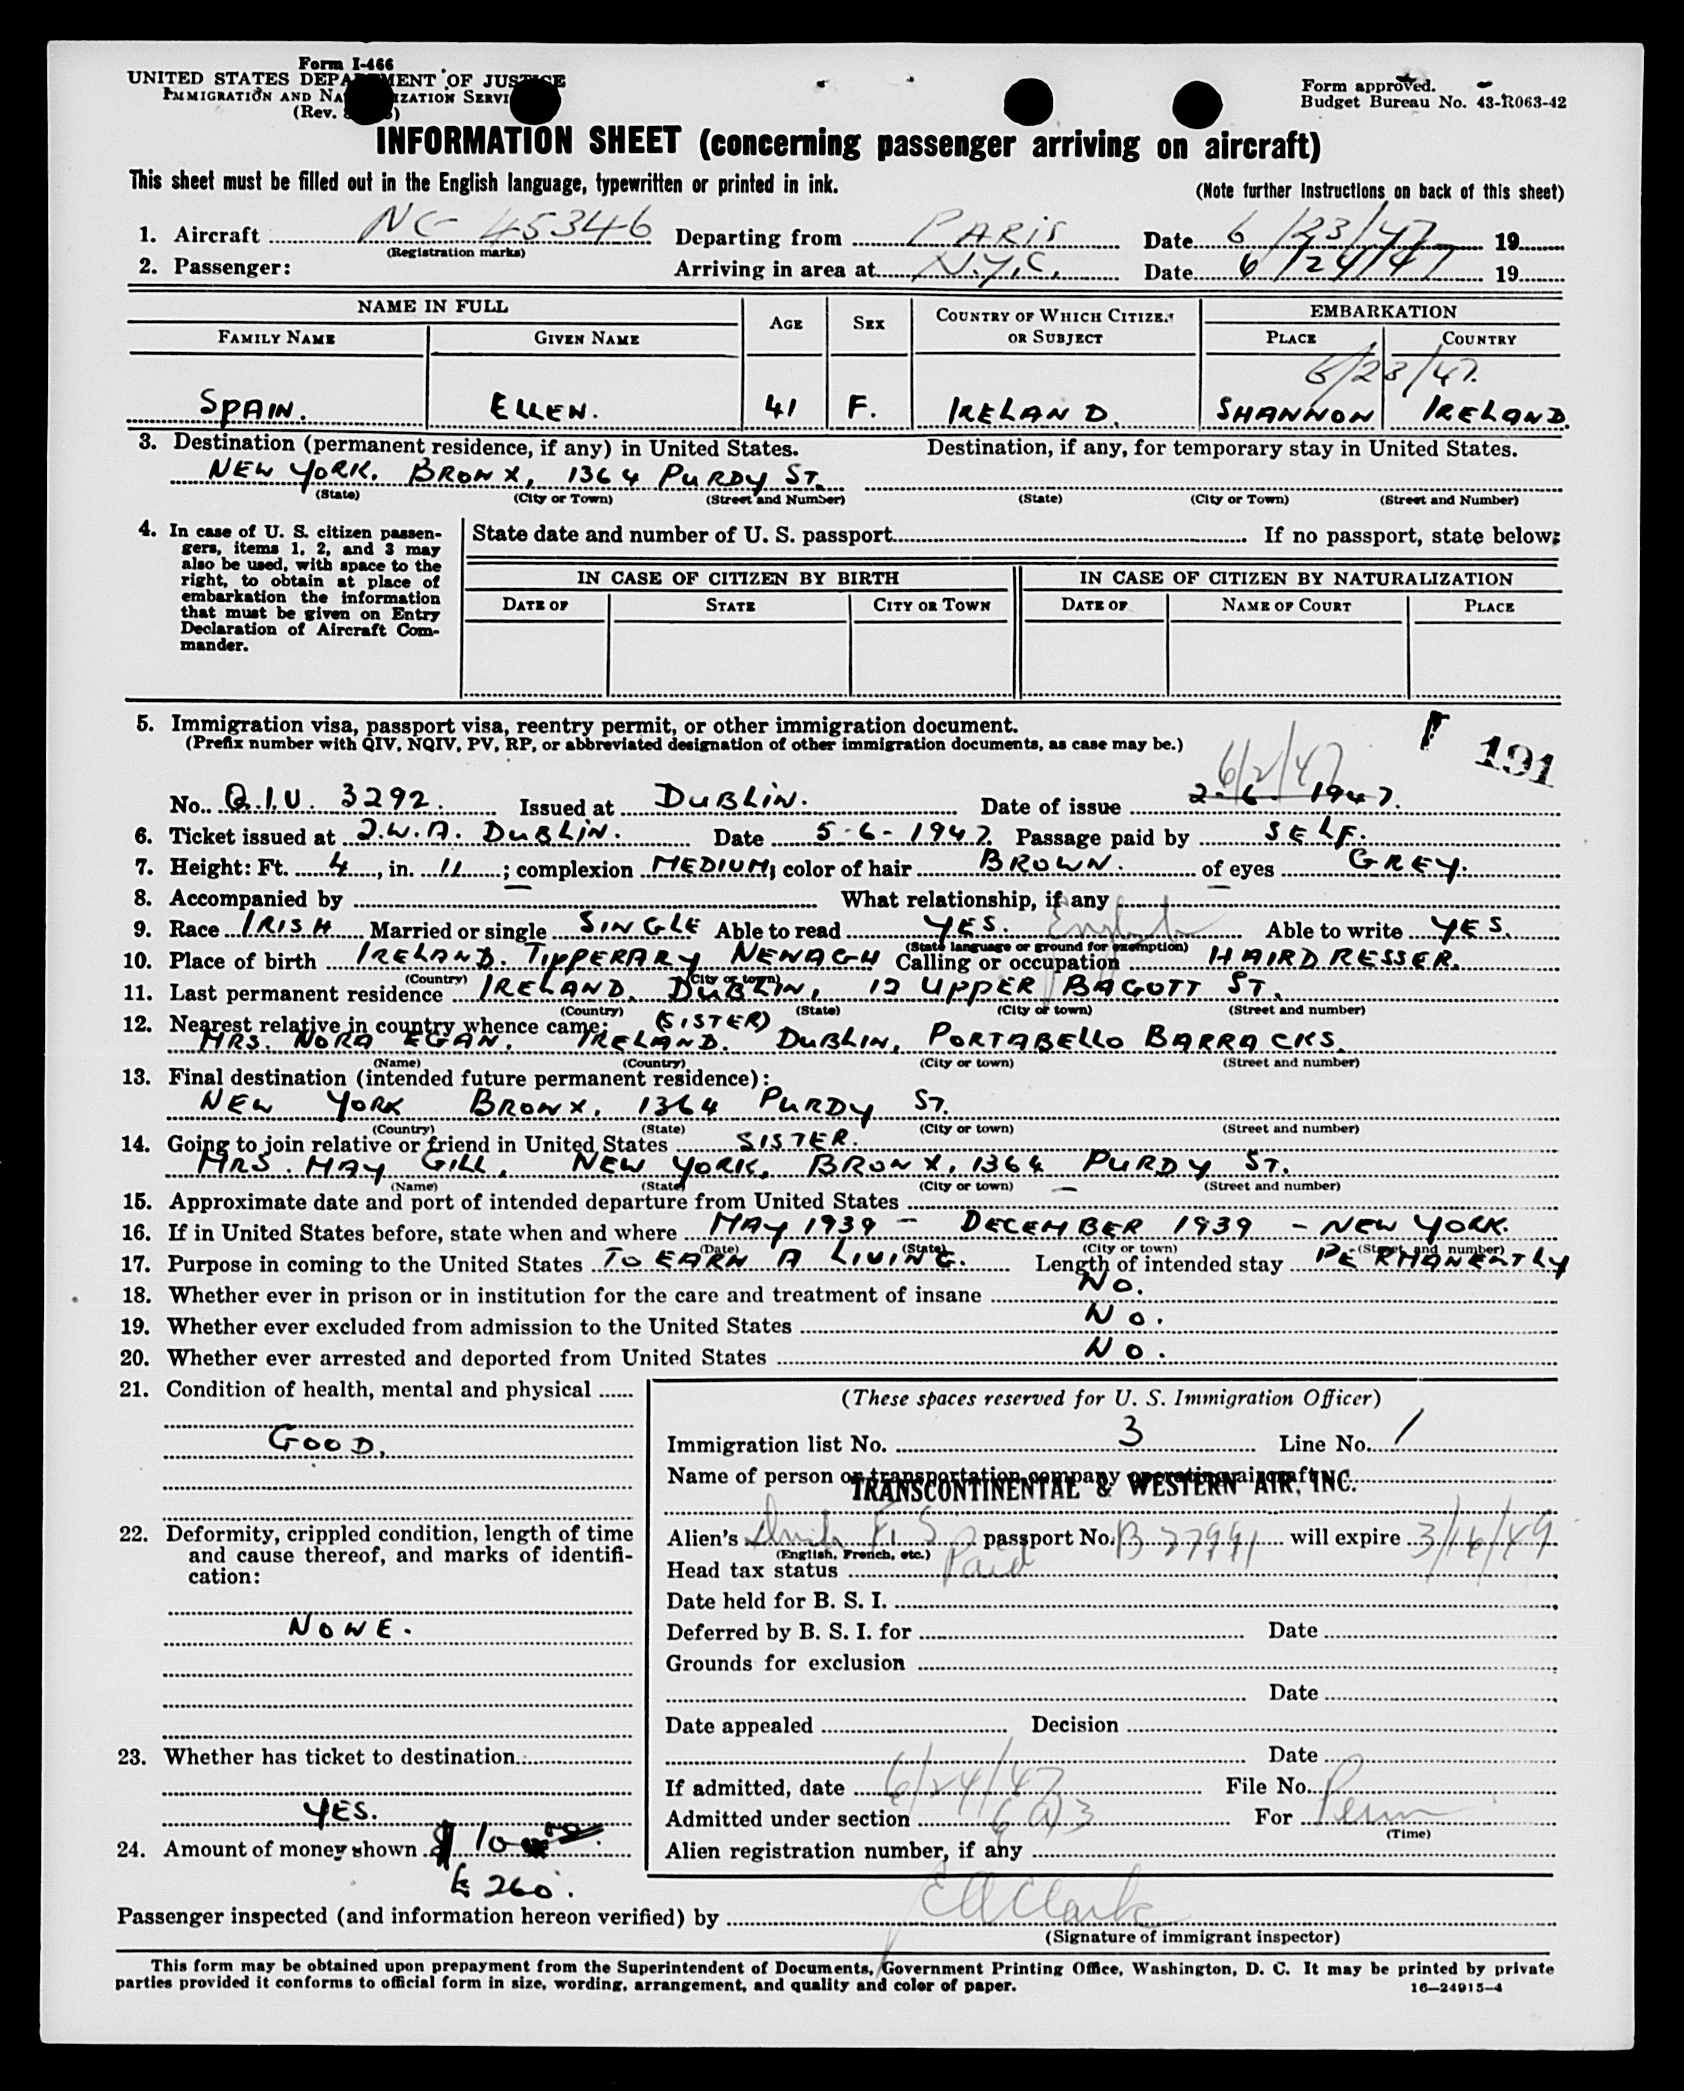 Form I-466
UNITED STATES DEPARTMENT OF JUSTICE
IMMIGRATION AND NATURALIZATION SERVI
(Rev.
Form approved.
Budget Bureau No. 43-R063-42
INFORMATION SHEET (concerning passenger arriving on aircraft)
This sheet must be filled out in the English language, typewritten or printed in ink.
(Note further instructions on back of this sheet)
1. Aircraft NC 45346 Departing from PARIS Date 6/23/47 19
(Registration marks)
2. Passenger: Arriving in area at N.Y.C. Date 6/24/47 19
NAME IN FULL AGE SEX COUNTRY OF WHICH CITIZEN OR SUBJECT EMBARKATION
FAMILY NAME GIVEN NAME PLACE COUNTRY
6/23/47.
SPAIN. ELLEN. 41 F. IRELAND. SHANNON IRELAND.
3. Destination (permanent residence, if any) in United States. Destination, if any, for temporary stay in United States.
NEW YORK. BRONX, 1364 PURDY ST.
(State) (City or Town) (Street and Number) (State) (City or Town) (Street and Number)
4. In case of U. S. citizen passen-
gers, items 1, 2, and 3 may
also be used, with space to the
right, to obtain at place of
embarkation the information
that must be given on Entry
Declaration of Aircraft Com-
mander.
State date and number of U. S. passport If no passport, state below:
IN CASE OF CITIZEN BY BIRTH IN CASE OF CITIZEN BY NATURALIZATION
DATE OF STATE CITY OR TOWN DATE OF NAME OF COURT PLACE
5. Immigration visa, passport visa, reentry permit, or other immigration document.
(Prefix number with QIV, NQIV, PV, RP, or abbreviated designation of other immigration documents, as case may be.)
191
6/2/47
No. Q.I.V. 3292. Issued at DUBLIN. Date of issue 2.6.1947.
6. Ticket issued at T.W.A. DUBLIN. Date 5-6-1947. Passage paid by SELF.
7. Height: Ft. 4, in. 11; complexion MEDIUM; color of hair BROWN. of eyes GREY.
8. Accompanied by What relationship, if any
9. Race IRISH Married or single SINGLE Able to read YES. English Able to write YES.
(State language or ground for exemption)
10. Place of birth IRELAND. TIPPERARY NENAGH Calling or occupation HAIRDRESSER.
(Country) (City or town)
11. Last permanent residence IRELAND. DUBLIN, 12 UPPER BAGOTT ST.
(Country) (State) (City or town) (Street and number)
12. Nearest relative in country whence came: (SISTER)
MRS. NORA EGAN. IRELAND. DUBLIN, PORTABELLO BARRACKS.
(Name) (Country) (City or town) (Street and number)
13. Final destination (intended future permanent residence):
NEW YORK BRONX, 1364 PURDY ST.
(Country) (State) (City or town) (Street and number)
14. Going to join relative or friend in United States SISTER.
MRS. MAY GILL, NEW YORK, BRONX, 1364 PURDY ST.
(Name) (State) (City or town) (Street and number)
15. Approximate date and port of intended departure from United States
16. If in United States before, state when and where MAY 1939 - DECEMBER 1939 - NEW YORK.
(Date) (State) (City or town) (Street and number)
17. Purpose in coming to the United States TO EARN A LIVING. Length of intended stay PERMANENTLY
18. Whether ever in prison or in institution for the care and treatment of insane NO.
19. Whether ever excluded from admission to the United States NO.
20. Whether ever arrested and deported from United States NO.
21. Condition of health, mental and physical
GOOD.
22. Deformity, crippled condition, length of time
and cause thereof, and marks of identifi-
cation:
NONE.
23. Whether has ticket to destination
YES.
24. Amount of money shown $ 10
260.
(These spaces reserved for U. S. Immigration Officer)
Immigration list No. 3 Line No. 1
Name of person or transportation company operating aircraft
TRANSCONTINENTAL & WESTERN AIR, INC.
Alien's passport No. B 27991 will expire 3/16/49
(English, French, etc.)
Head tax status Paid
Date held for B. S. I.
Deferred by B. S. I. for Date
Grounds for exclusion
Date
Date appealed Decision
Date
If admitted, date 6/24/47 File No.
Admitted under section 6 (a) 3 For Perm
(Time)
Alien registration number, if any
Passenger inspected (and information hereon verified) by EA Clark
(Signature of immigrant inspector)
This form may be obtained upon prepayment from the Superintendent of Documents, Government Printing Office, Washington, D. C. It may be printed by private
parties provided it conforms to official form in size, wording, arrangement, and quality and color of paper.
16—24915-4